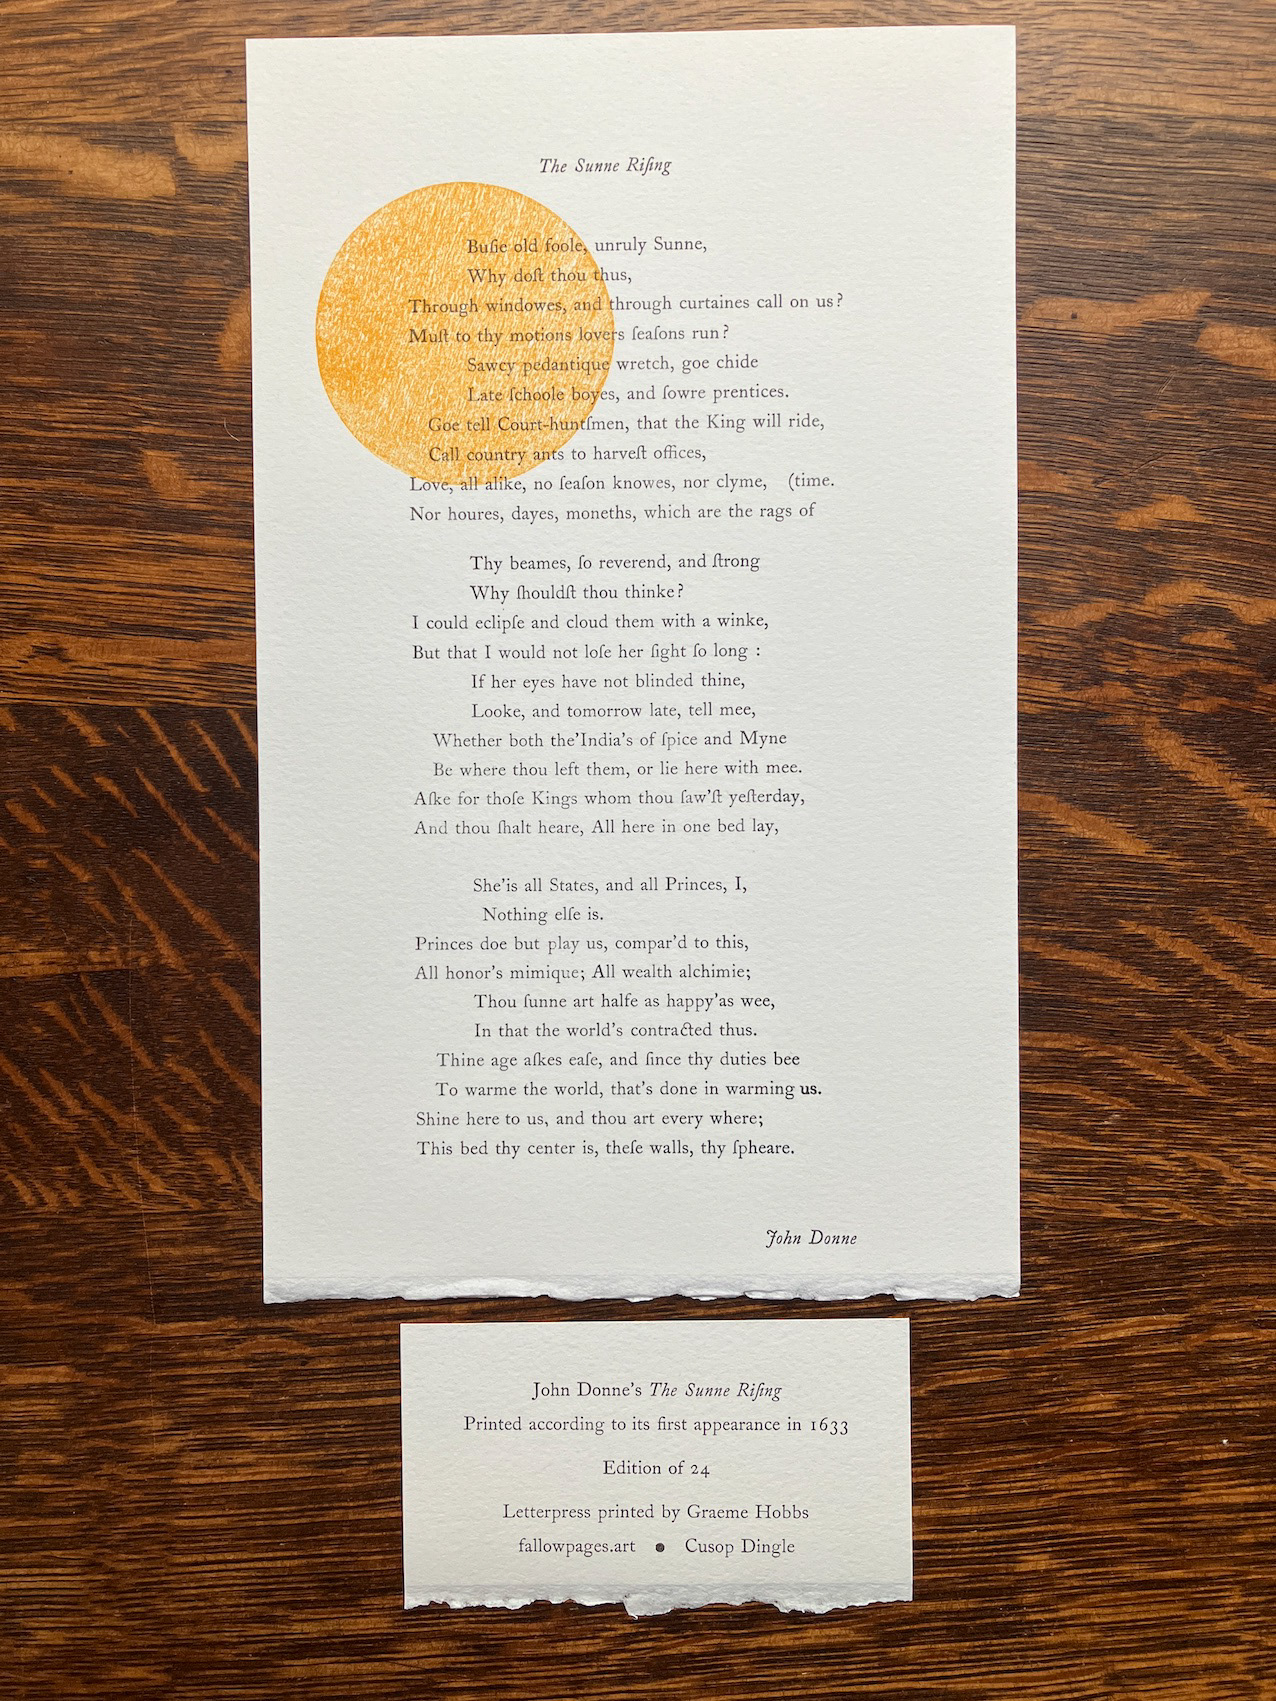 The Sunne Riſing
Buſie old foole, unruly Sunne,
Why doſt thou thus,
Through windowes, and through curtaines call on us?
Muſt to thy motions lovers ſeaſons run?
Sawcy pedantique wretch, goe chide
Late ſchoole boyes, and ſowre prentices.
Goe tell Court-huntſmen, that the King will ride,
Call country ants to harveſt offices,
Love, all alike, no ſeaſon knowes, nor clyme, (time.
Nor houres, dayes, moneths, which are the rags of
Thy beames, ſo reverend, and ſtrong
Why ſhouldſt thou thinke?
I could eclipſe and cloud them with a winke,
But that I would not loſe her ſight ſo long :
If her eyes have not blinded thine,
Looke, and tomorrow late, tell mee,
Whether both the'India's of ſpice and Myne
Be where thou left them, or lie here with mee.
Aſke for thoſe Kings whom thou ſaw'ſt yeſterday,
And thou ſhalt heare, All here in one bed lay,
She'is all States, and all Princes, I,
Nothing elſe is.
Princes doe but play us, compar'd to this,
All honor's mimique; All wealth alchimie;
Thou ſunne art halfe as happy'as wee,
In that the world's contracted thus.
Thine age aſkes eaſe, and ſince thy duties bee
To warme the world, that's done in warming us.
Shine here to us, and thou art every where;
This bed thy center is, theſe walls, thy ſpheare.
John Donne
John Donne's The Sunne Riſing
Printed according to its first appearance in 1633
Edition of 24
Letterpress printed by Graeme Hobbs
fallowpages.art ● Cusop Dingle